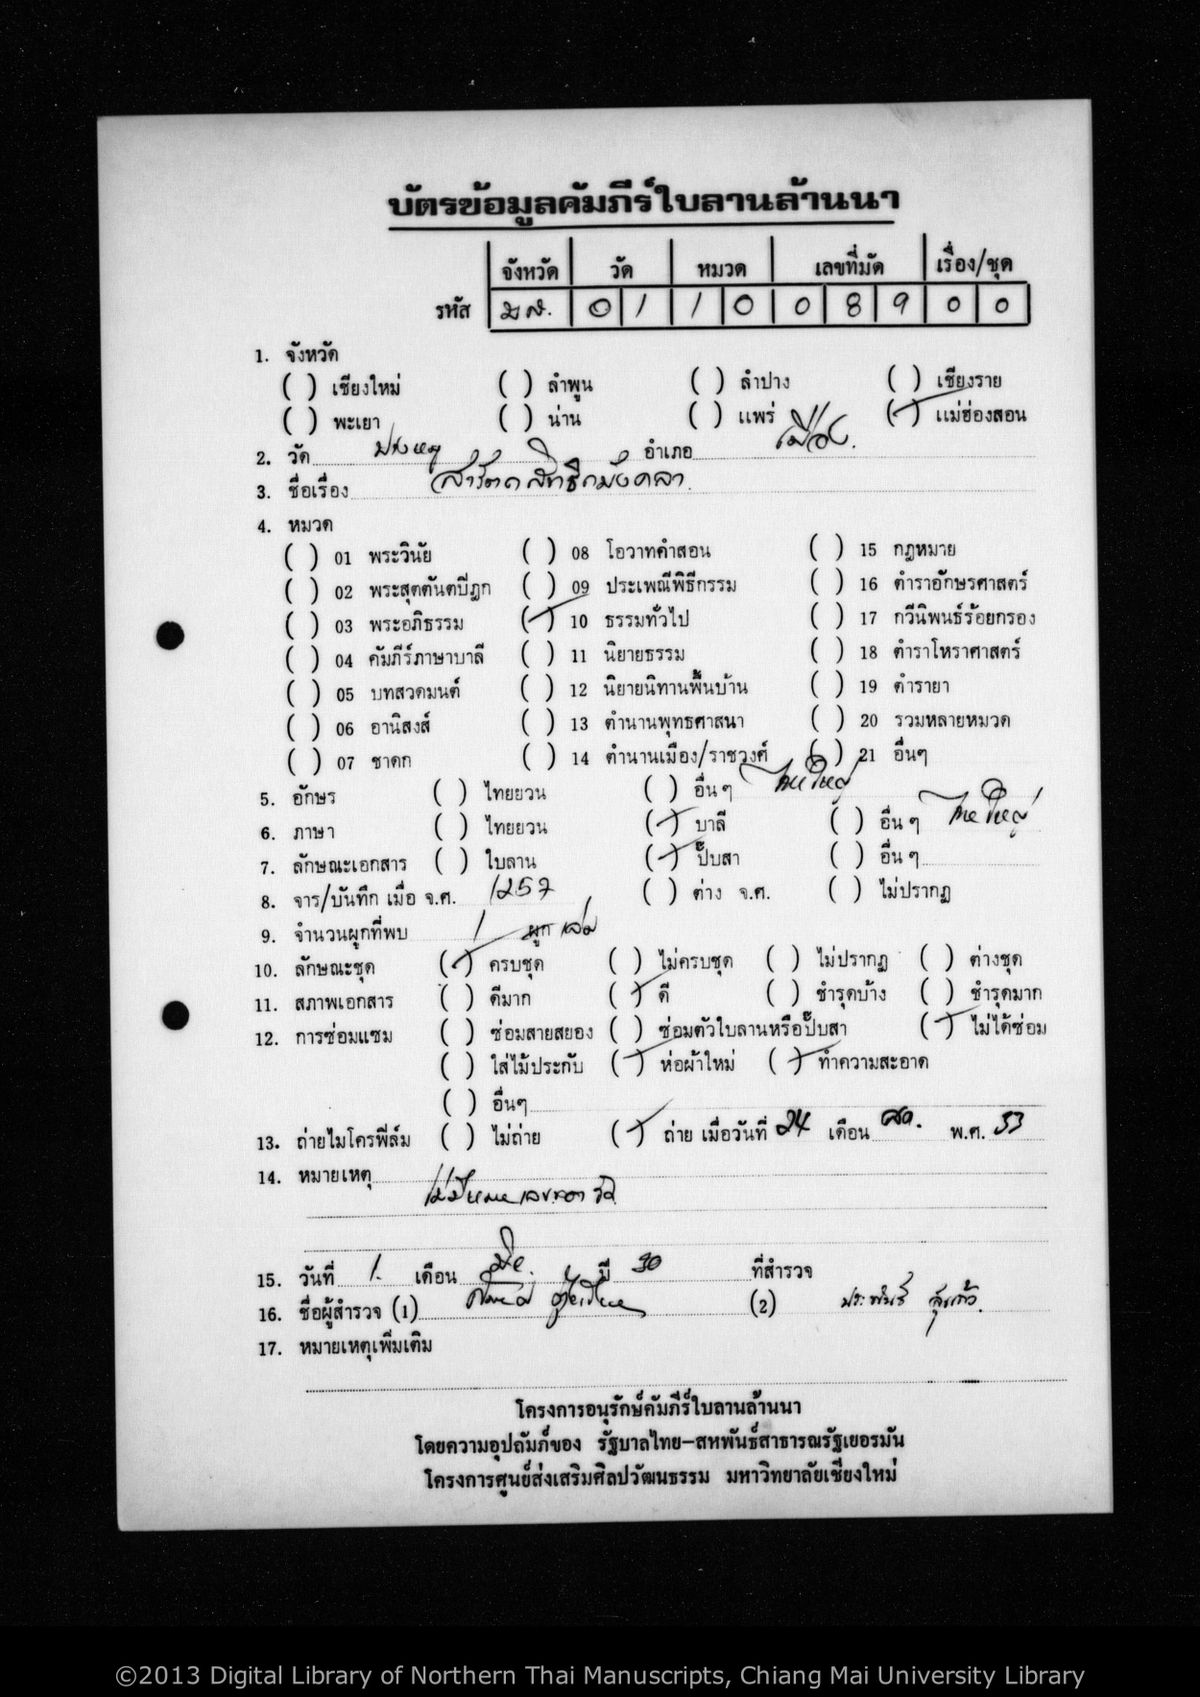 บัตรข้อมูลคัมภีร์ใบลานล้านนา
จังหวัด วัด หมวด เลขที่มัด เรื่อง/ชุด
รหัส มส. 0 1 1 0 0 8 9 0 0
1. จังหวัด
( ) เชียงใหม่ ( ) ลำพูน ( ) ลำปาง ( ) เชียงราย
( ) พะเยา ( ) น่าน ( ) แพร่ (✓) แม่ฮ่องสอน
2. วัด อำเภอ เมือง.
3. ชื่อเรื่อง
4. หมวด
( ) 01 พระวินัย ( ) 08 โอวาทคำสอน ( ) 15 กฎหมาย
( ) 02 พระสุตตันตปิฎก ( ) 09 ประเพณีพิธีกรรม ( ) 16 ตำราอักษรศาสตร์
( ) 03 พระอภิธรรม (✓) 10 ธรรมทั่วไป ( ) 17 กวีนิพนธ์ร้อยกรอง
( ) 04 คัมภีร์ภาษาบาลี ( ) 11 นิยายธรรม ( ) 18 ตำราโหราศาสตร์
( ) 05 บทสวดมนต์ ( ) 12 นิยายนิทานพื้นบ้าน ( ) 19 ตำรายา
( ) 06 อานิสงส์ ( ) 13 ตำนานพุทธศาสนา ( ) 20 รวมหลายหมวด
( ) 07 ชาดก ( ) 14 ตำนานเมือง/ราชวงศ์ ( ) 21 อื่นๆ
5. อักษร ( ) ไทยยวน ( ) อื่น ๆ ไทยใหญ่
6. ภาษา ( ) ไทยยวน (✓) บาลี ( ) อื่น ๆ ไทยใหญ่
7. ลักษณะเอกสาร ( ) ใบลาน (✓) ปั๊บสา ( ) อื่น ๆ
8. จาร/บันทึก เมื่อ จ.ศ. 1257 ( ) ต่าง จ.ศ. ( ) ไม่ปรากฏ
9. จำนวนผูกที่พบ 1 ผูก เล่ม
10. ลักษณะชุด (✓) ครบชุด ( ) ไม่ครบชุด ( ) ไม่ปรากฏ ( ) ต่างชุด
11. สภาพเอกสาร ( ) ดีมาก (✓) ดี ( ) ชำรุดบ้าง ( ) ชำรุดมาก
12. การซ่อมแซม ( ) ซ่อมสายสยอง ( ) ซ่อมตัวใบลานหรือปั๊บสา (✓) ไม่ได้ซ่อม
( ) ใส่ไม้ประกับ (✓) ห่อผ้าใหม่ (✓) ทำความสะอาด
( ) อื่นๆ
13. ถ่ายไมโครฟีล์ม ( ) ไม่ถ่าย (✓) ถ่าย เมื่อวันที่ 24 เดือน สค. พ.ศ. 33
14. หมายเหตุ
ไม่มีหมายเลขของวัด
15. วันที่ 1. เดือน มิย. ปี 30 ที่สำรวจ
16. ชื่อผู้สำรวจ (1) (2) ประพันธ์ สุขแก้ว.
17. หมายเหตุเพิ่มเติม
โครงการอนุรักษ์คัมภีร์ใบลานล้านนา
โดยความอุปถัมภ์ของ รัฐบาลไทย-สหพันธ์สาธารณรัฐเยอรมัน
โครงการศูนย์ส่งเสริมศิลปวัฒนธรรม มหาวิทยาลัยเชียงใหม่
©2013 Digital Library of Northern Thai Manuscripts, Chiang Mai University Library